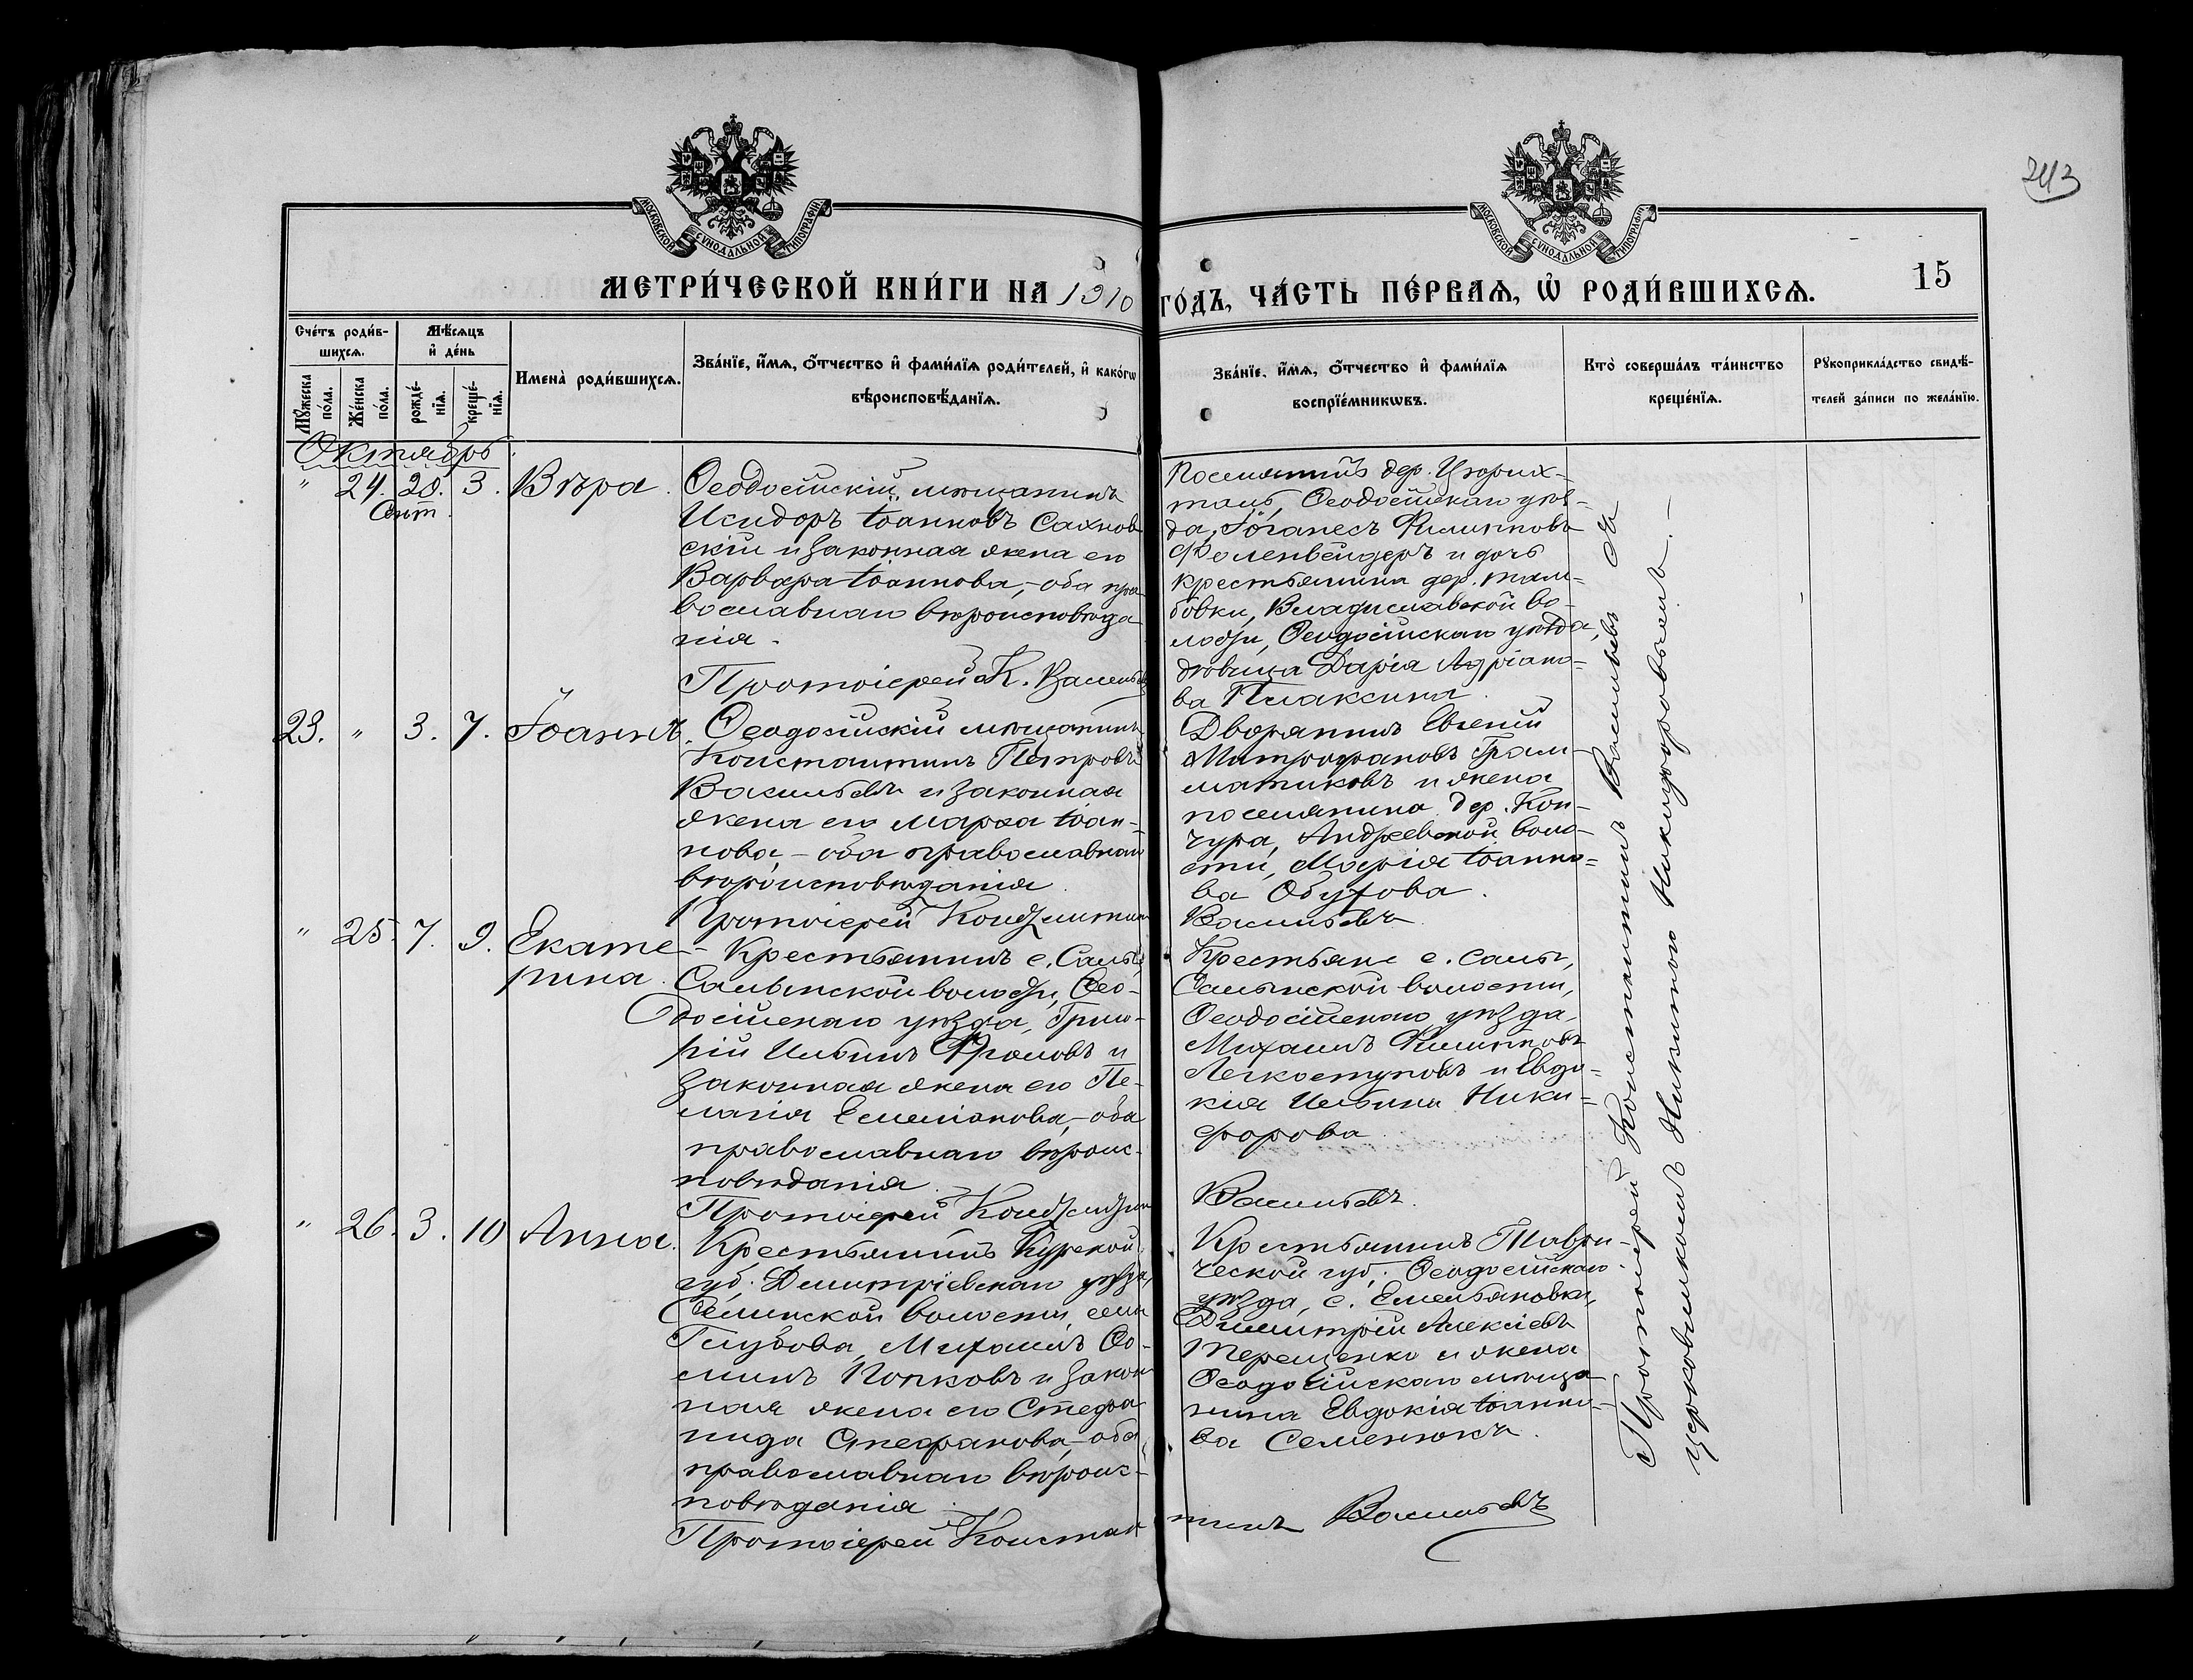 243
МОСКОВСКОЙ СУНОДАЛЬНОЙ ТИПОГРАФІИ
МОСКОВСКОЙ СУНОДАЛЬНОЙ ТИПОГРАФІИ
МЕТРИ́ЧЕСКОЙ КНИ́ГИ НА 1910 ГО́ДЪ, ЧА́СТЬ ПЕ́РВАѦ, Ѽ РОДИ́ВШИХСѦ.
15
Счéтъ роди́в-
шихсѧ.
Мѣ́сѧцъ
и҆ дéнь
Мꙋ́жеска
по́ла.
Же́нска
по́ла.
рождé-
нїѧ.
крещé-
нїѧ.
Имена̀ роди́вшихсѧ.
Зва́нїе, и҆́мѧ, ѻ҆́тчество и҆ фами́лїѧ роди́телей, и҆ како́гѡ
вѣроисповѣ́данїѧ.
Зва́нїе, и҆́мѧ, ѻ҆́тчество и҆ фами́лїѧ
воспрїéмникѡвъ.
Кто̀ соверша́лъ та́инство
крещéнїѧ.
Рꙋкоприкла́дство свидѣ́-
телей за́писи по жела́нїю.
Октябрь
" 24. 20. 3. Вѣра.
Сент.
Ѳеодосійскій мѣщанинъ
Исидоръ Іоанновъ Сахнов
скій и законная жена его
Варвара Іоаннова, – оба пра
вославнаго вѣроисповѣда
нія.
Протоіерей К. Васильевъ
Поселянинъ дер. Цюрих-
таль, Ѳеодосійскаго уѣз-
да, Іоганесъ Филипповъ
Фоленвейдеръ и дочь
крестьянина дер. Там-
бовки, Владиславской во-
лости, Ѳеодосійскаго уѣзда,
дѣвица Дарія Адріано-
ва Плаксина.
23. " 3. 7. Іоаннъ.
Ѳеодосійскій мѣщанинъ
Константинъ Петровъ
Васильевъ и законная
жена его Марѳа Іоан-
нова, – оба православнаго
вѣроисповѣданія.
Протоіерей Константинъ
Дворянинъ Евгеній
Митрофановъ Грам-
матиковъ и жена
поселянина дер. Коп-
чура, Андреевской воло-
сти, Марія Іоанно-
ва Обухова.
Васильевъ
" 25. 7. 9. Екате
рина.
Крестьянинъ с. Салы,
Салынской волости, Ѳео-
досійскаго уѣзда, Григо-
рій Ильинъ Фроловъ и
законная жена его Пе-
лагія Емеліанова, – оба
православнаго вѣроис-
повѣданія.
Протоіерей Константинъ
Крестьяне с. Салы,
Салынской волости,
Ѳеодосійскаго уѣзда,
Михаилъ Филипповъ
Легкоступовъ и Евдо-
кія Ильина Ники-
форова
Васильевъ.
" 26. 3. 10 Анна.
Крестьянинъ Курской
губ. Димитріевскаго уѣзда,
Селинской волости, села
Голубова, Михаилъ Ѳо-
минъ Попковъ и закон
ная жена его Стефа
нида Стефанова, – оба
православнаго вѣроис-
повѣданія.
Протоіерей Констан
Крестьянинъ Таври-
ческой губ., Ѳеодосійскаго
уѣзда, с. Емельяновки,
Димитрій Алексіевъ
Терещенко и жена
Ѳеодосійскаго мѣща-
нина Евдокія Іоанно-
ва Семенюкъ.
тинъ Васильевъ
Протоіерей Константинъ Васильевъ съ
церковникомъ Никитою Никифоровымъ. –